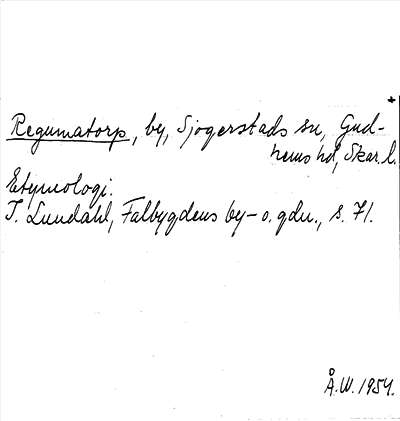 Regumatorp, by, Sjogerstads sn, Gud-
hems hd, Skar. l.
Etymologi.
I. Lundahl, Falbygdens by- o. gdn., s. 71.
Å.W. 1954.